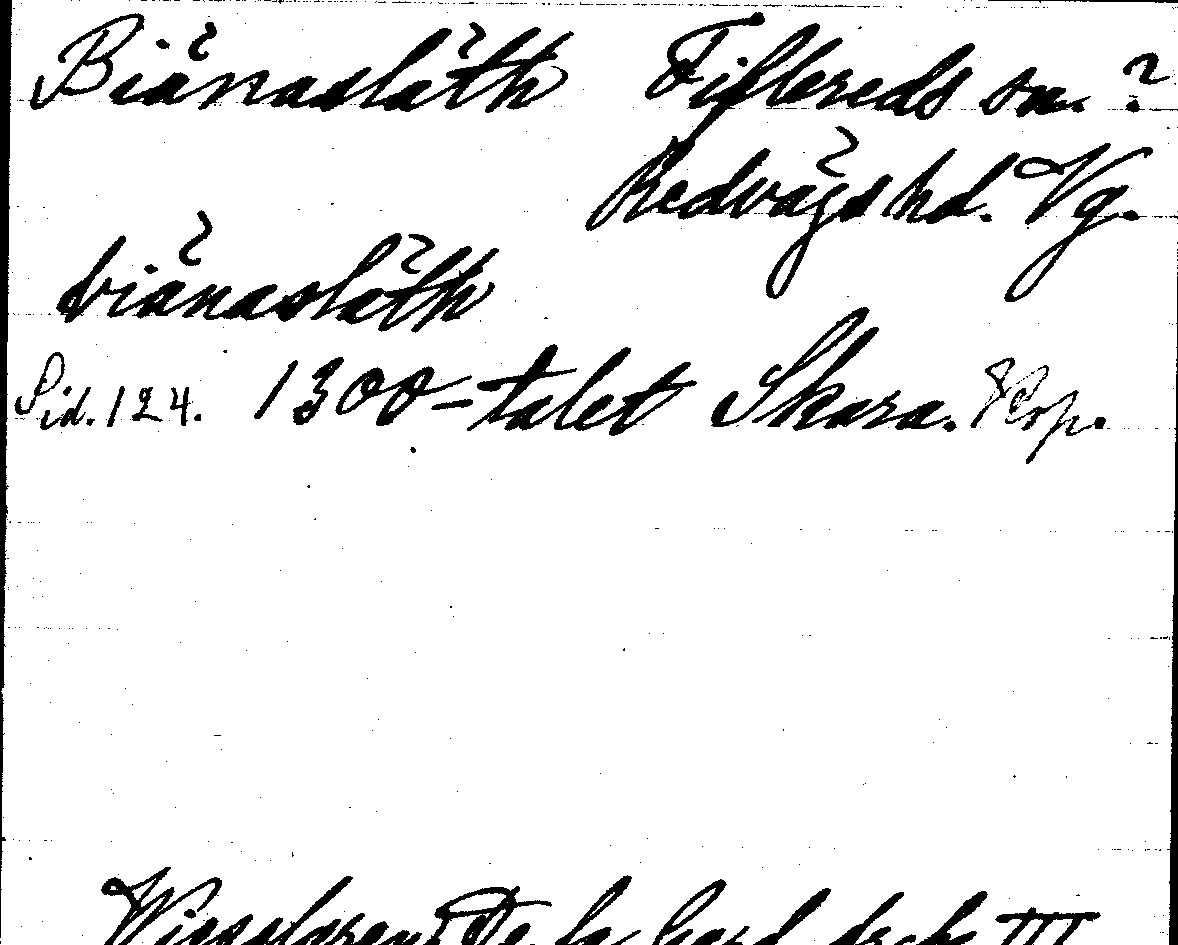 Biänasläth Fiflereds sn. ?
Redvägs hd. Vg.
biänasläth
Sid. 124. 1300-talet Skara. Kop.
De la Gard. Arch. III